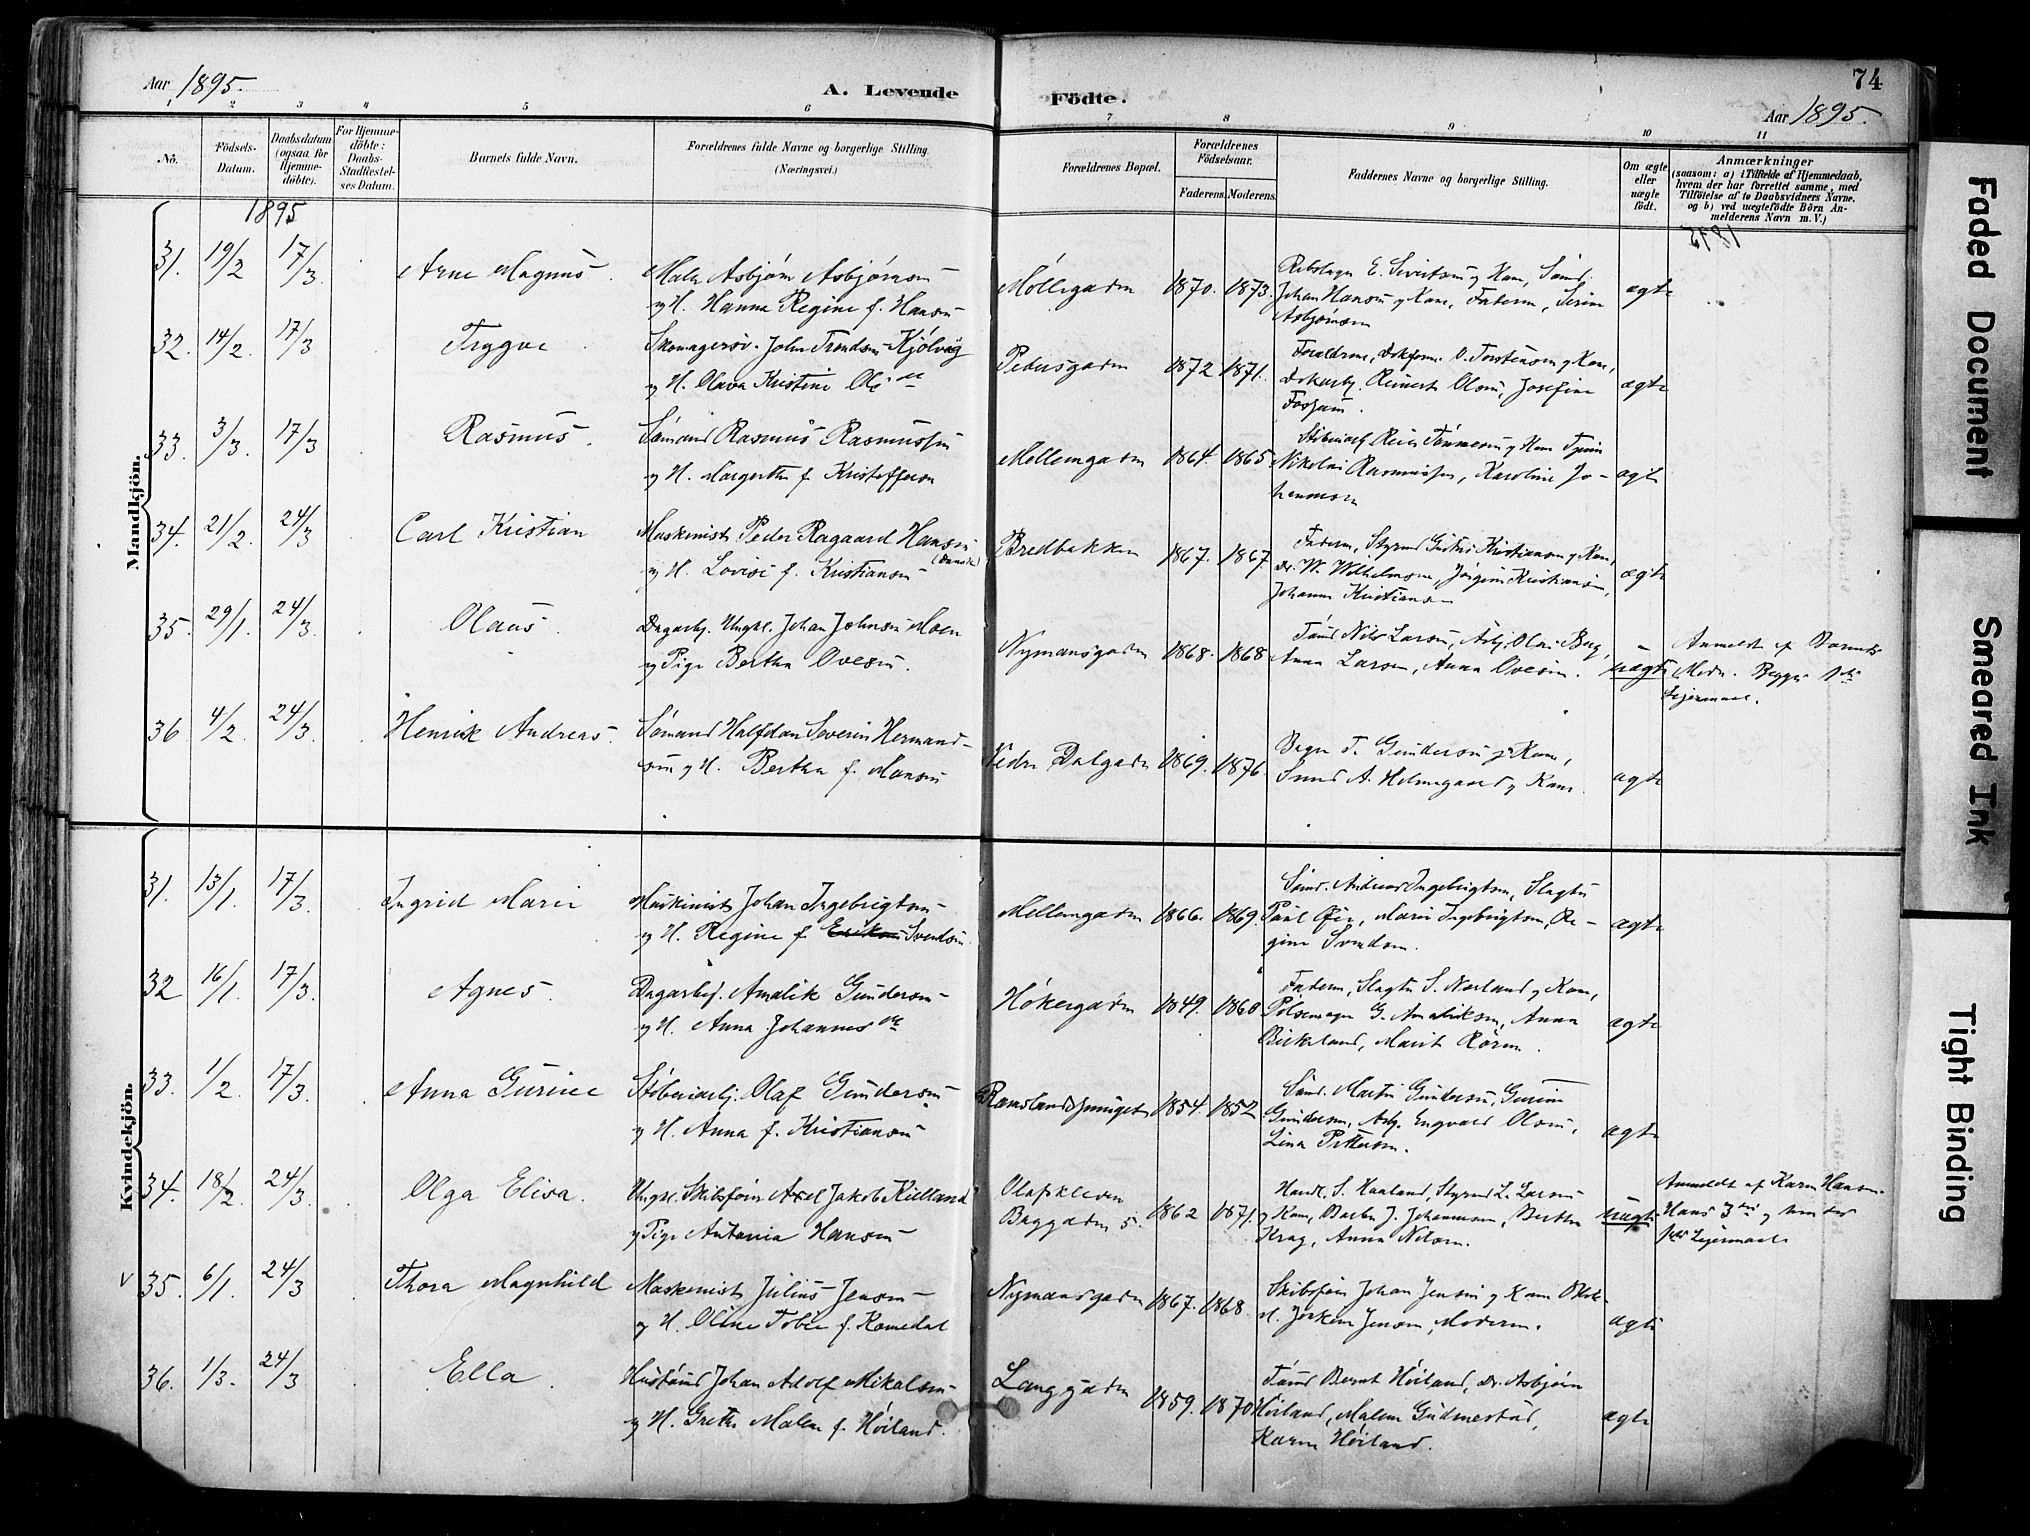 Aar 1895.
A. Levende
Födte.
74
Aar 1895.
1 2 3 4 5 6 7 8 9 10 11
No.
Födsels-Datum.
Daabsdatum (ogsaa for Hjemme-döbte).
For Hjemme-döbte: Daabs-Stadfæstel-ses Datum.
Barnets fulde Navn.
Forældrenes fulde Navne og borgerlige Stilling.
(Næringsvei.)
Forældrenes Bopæl.
Forældrenes Födselsaar.
Faderens. Moderens.
Faddernes Navne og borgerlige Stilling.
Om ægte eller uægte födt.
Anmærkninger
(saasom: a) i Tilfælde af Hjemmedaab, hvem der har forrettet samme, med Tilföielse af to Daabsvidners Navne. og b) ved uægtefödte Börn Anmelderens Navn m. V.)
Mandkjön.
1895
31. 19/2 17/3 Arne Magnus. Asbjørn Asbjørnsen Møllegaden 1870. 1873. E. Sivertsen og Kone, Sømd. ægte
og H. Hanna Regine f. Hansen Johan Hansen og Kone, Faderen,
Asbjørnsen
32. 14/2. 17/3 Trygve Skomagersv. John Trondsen Kjölvig Pedersgaden 1872 1871. Forældrene, V. Torstensen og Kone, ægte
og H. Olava Kristine Reinert Olsen, Josefine
33. 3/3. 17/3 Rasmus. Sømand Rasmus Rasmussen Mellemgaden 1864. 1865 ægte
og H. Margrethe f. Kristoffersen Nikolai Rasmussen, Karoline Jo-
hannesen
34. 21/2. 24/3 Carl Kristian Maskinist Peder Ragaard Hansen (Dansk) Bredbakken 1867. 1867 Faderen, Styrmd Gustav Kristiansen og Kone, ægte
og H. Lovise f. Kristiansen W. Wilhelmsen, Jörgine Kristiansen,
Johanne Kristiansen
35. 29/1. 24/3. Olaus. Dagarbj. Ungk. Johan Johnsen Moen Nymansgaden 1868. 1868 Nils Larsen, Arbj. Olai Berg, uægte Anmeldt af Barnets
og Pige Bertha Ovesen. Anna Larsen, Anna Ovesen. Moder. Begges 1ste
Leiermaal.
36 4/2. 24/3. Henrik Andreas. Sømand Halfdan Severin Hermand- Vedre Dalgaden 1869. 1876. T. Gundersen og Kone, ægte
sen og H. Bertha f. Hansen A. Helmegaard og Kone.
Kvindekjön.
31. 13/1. 17/3. Ingrid Marie Maskinist Johan Ingebrigtsen Mellemgaden 1866. 1869. Sømd. Andreas Ingebrigtsen, Slagter ægte
og H. Regine f. Svendsen Marie Ingebrigtsen, Re-
gine Svendsen.
32 16/1. 17/3. Agnes. Dagarbej. Amalik Gundersen Høkergaden 1849. 1860 Faderen, Slagter S. Nærland og Kone, ægte
og H. Anna Johannesdtr Pølsemager G. Amaliksen, Anna
Birkeland, Marit Rören.
33. 1/2. 17/3. Anna Gurine Støberiarbj. Olaf Gundersen 1854. 1852 Sømd. Martin Gundersen, Gurine ægte
og H. Anna f. Kristiansen Gundersen, Arbj. Engvald Olsen,
Lina Pettersen.
34. 18/2. 24/3. Olga Elisa. Ungk. Skibsfører Axel Jakob Kielland Olafskleven 1862 1871. Handl. S. Haaland, Styrmd L. Larsen uægte Anmeldt af Karen Hansen
og Pige Antonia Hansen Baggaden 5. og Kone, Barber J. Johannesen, Berthe Hans 3die og hendes
Krag, Anna Nilsen. første Leiermaal
V 35. 6/1. 24/3 Thora Magnhild Maskinist Julius Jensen Nymansgaden 1867. 1868. Skibsfører Johan Jensen og Kone ægte
og H. Oline Tobie f. Romedal Jensen, Moderen.
36. 1/3. 24/3 Ella Johan Adolf Mikalsen Langgaden 1859. 1870 Bernt Høiland, Asbjørn ægte
og H. Grethe Malene f. Høiland. Høiland, Malene Gudmestad,
Karen Høiland.
Faded Document
Smeared Ink
Tight Binding